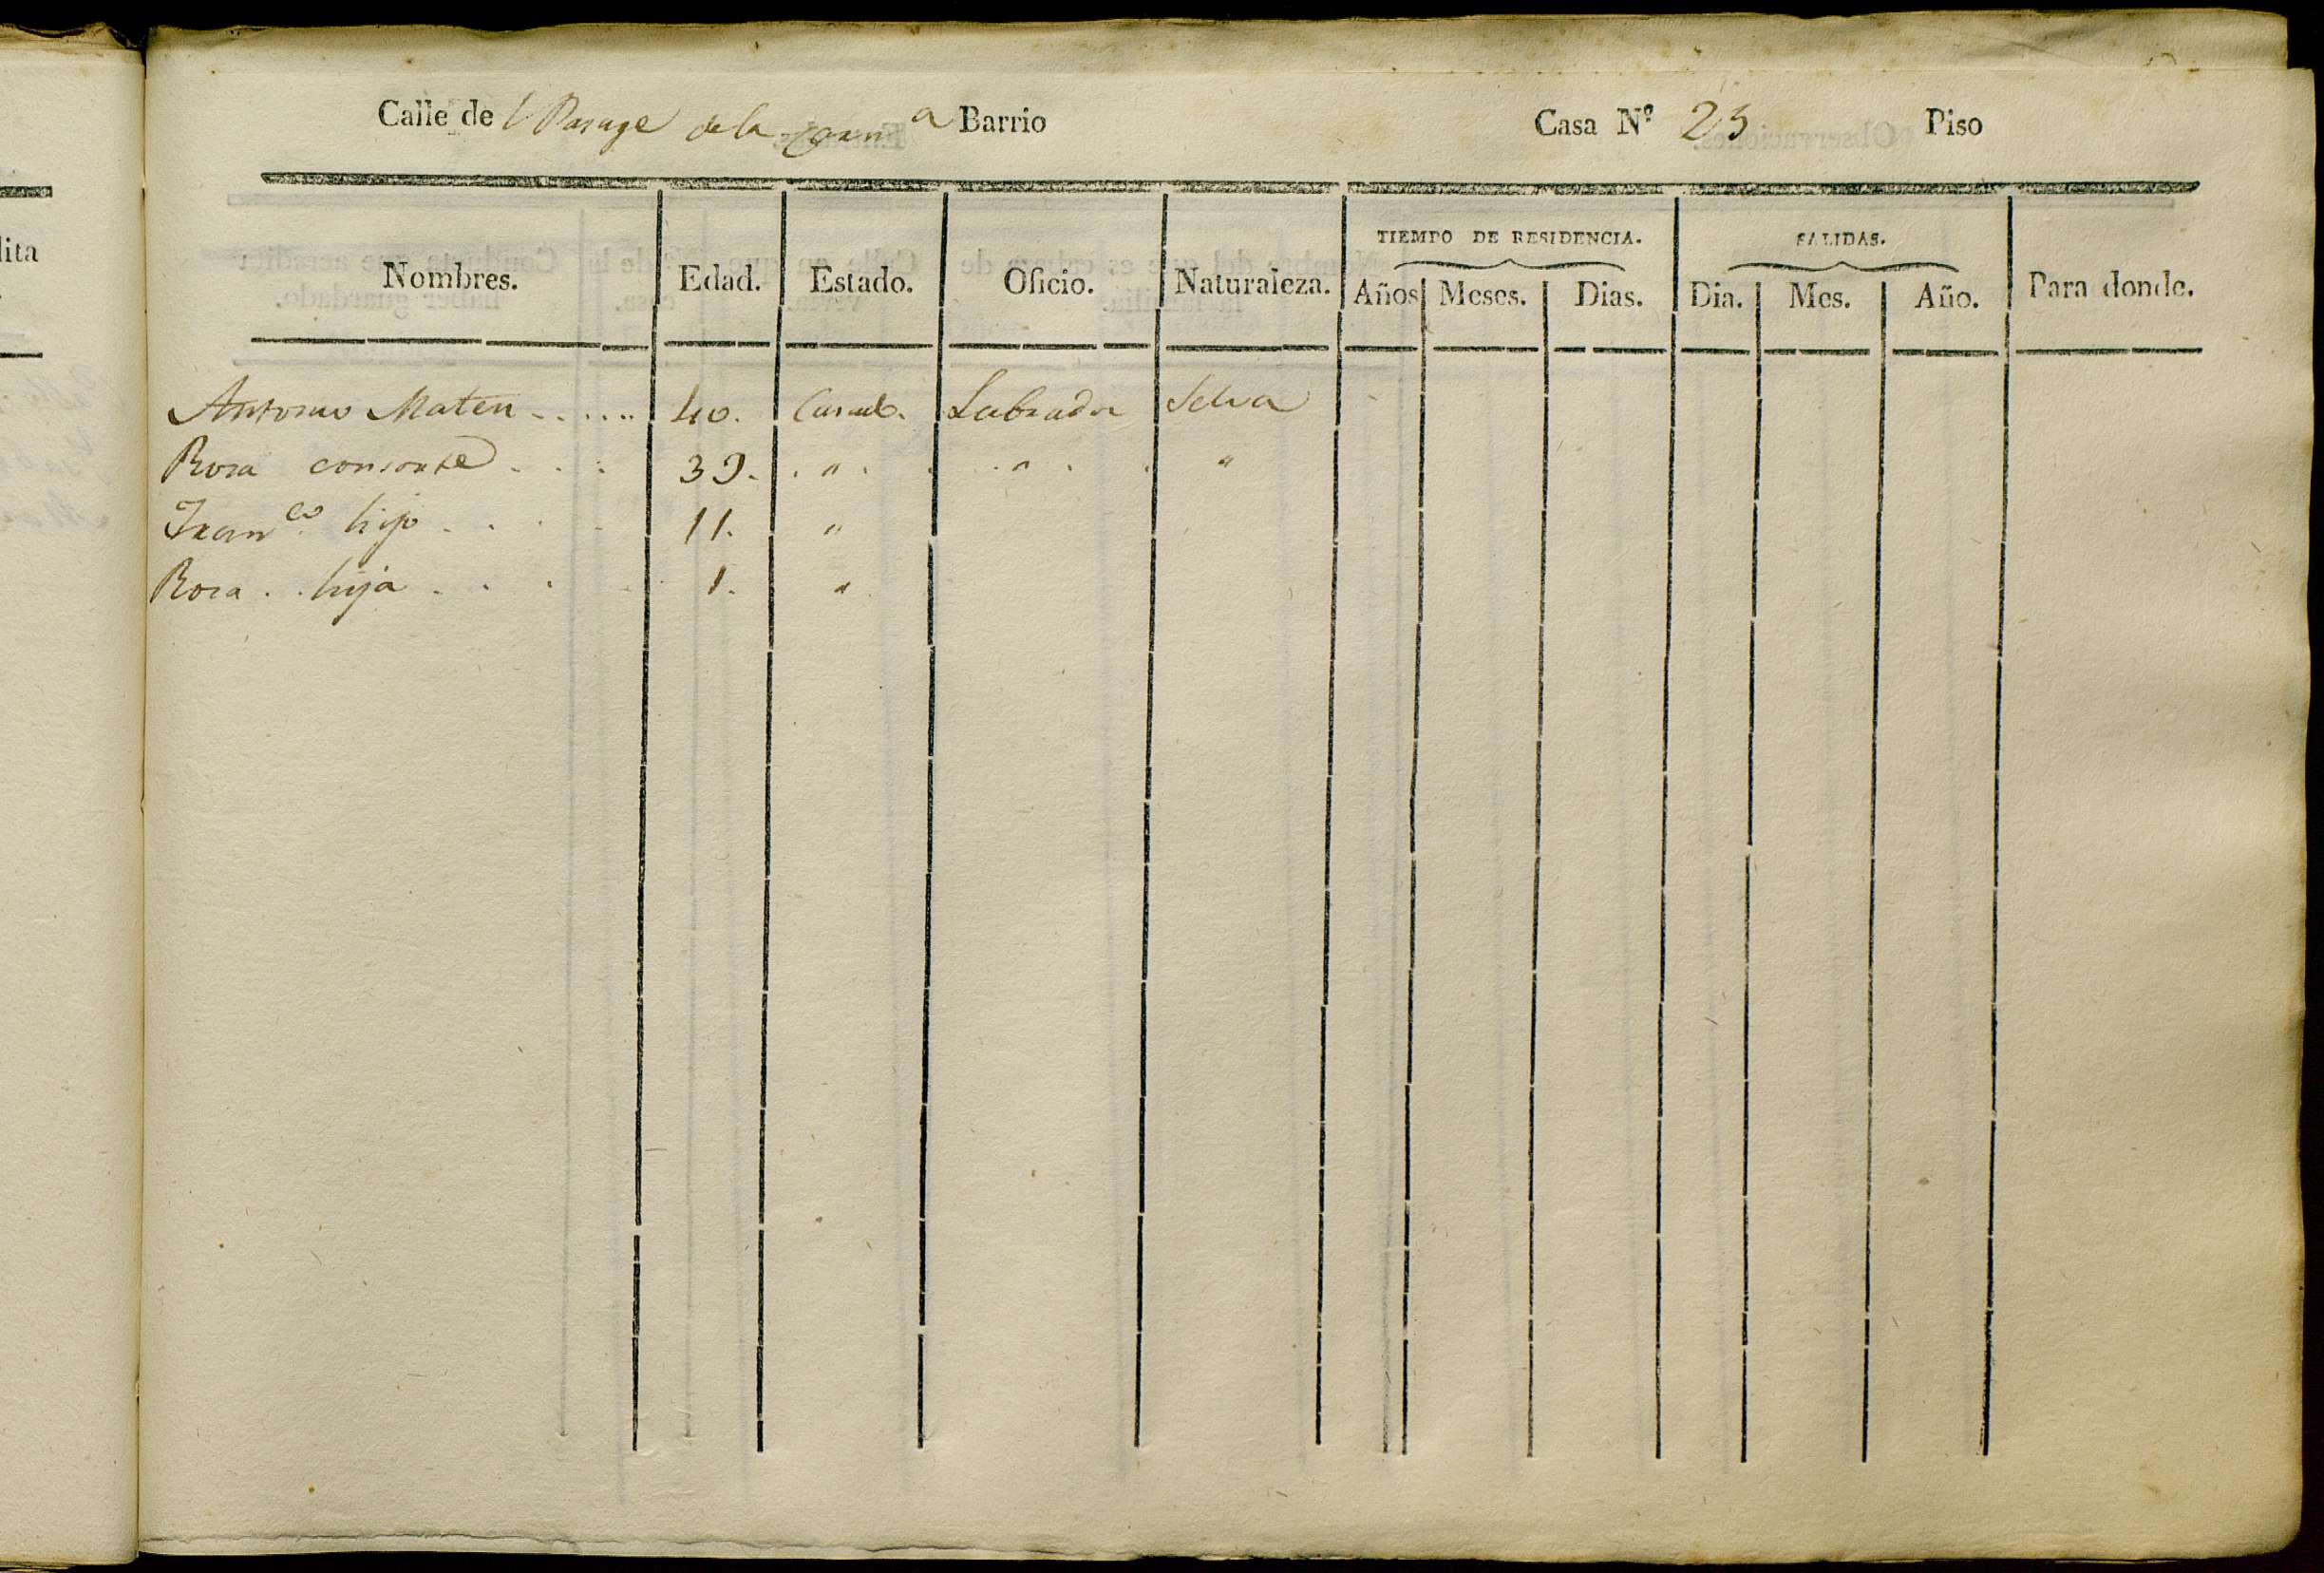 lita
Calle de l Pasage de la Barrio Casa Nº 23 Piso
Nombres. Edad. Estado. Oficio. Naturaleza. TIEMPO DE RESIDENCIA. Años Meses. Dias. SALIDAS. Dia. Mes. Año. Para donde.
Antonio Mateu 40. Casado. Labrador Selva
Rosa consorte 39. " " "
Franco hijo 11. "
Rosa hija 1. "